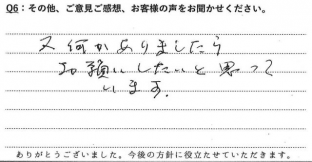 Q6：その他、ご意見ご感想、お客様の声をお聞かせください。
又何かありましたら
お願いしたいと思って
います。
ありがとうございました。今後の方針に役立たせていただきます。